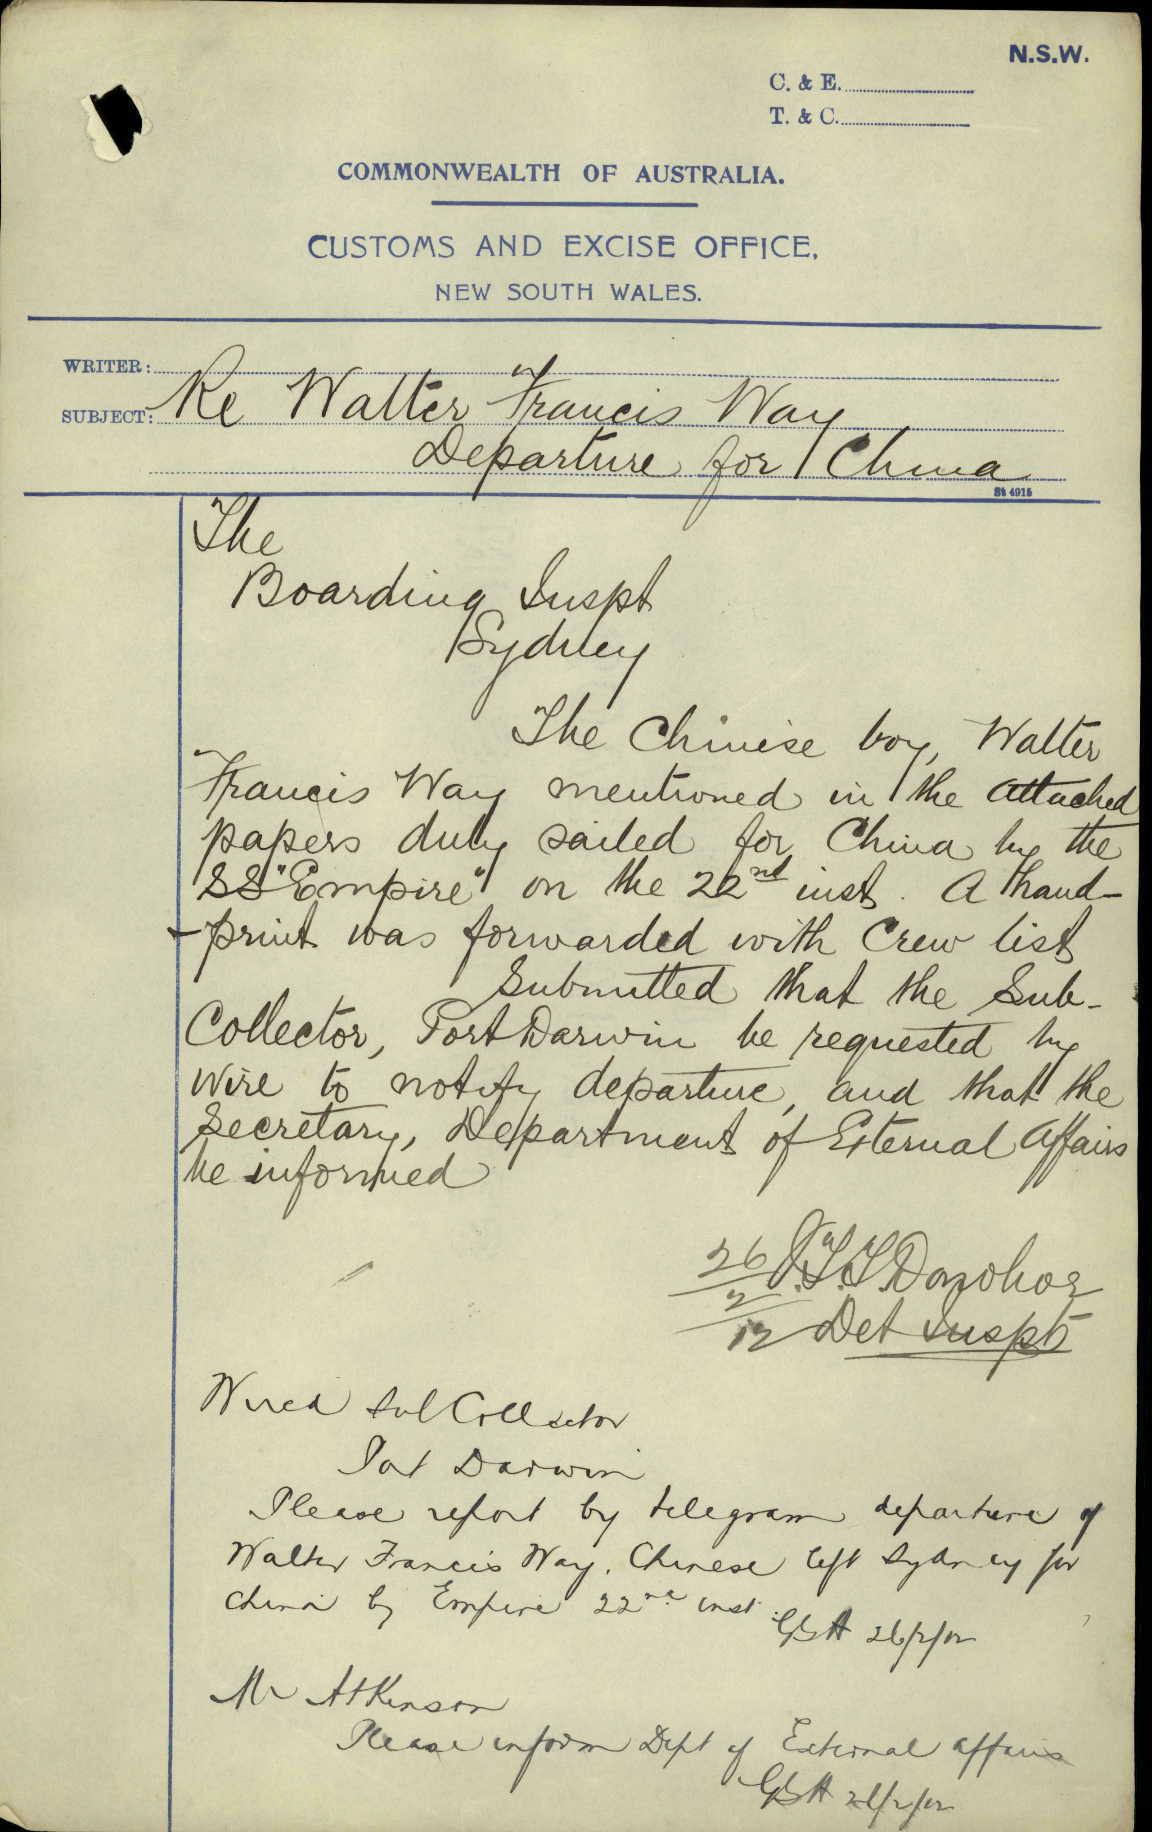 N.S.W.
C. & E.
T. & C.
COMMONWEALTH OF AUSTRALIA.
CUSTOMS AND EXCISE OFFICE,
NEW SOUTH WALES.
WRITER:
SUBJECT: Re Walter Francis Way
Departure for China
St 4915
The
Boarding Inspt
Sydney
The Chinese boy, Walter
Francis Way mentioned in the attached
papers duly sailed for China by the
SS "Empire" on the 22nd inst. A hand-
-print was forwarded with Crew list
Submitted that the Sub-
Collector, Port Darwin be requested by
wire to notify departure, and that the
Secretary, Department of External Affairs
be informed
26/2/12 J.T.T. Donohoe
Det Inspt
Wired Sub Collector
Port Darwin
Please report by telegram departure of
Walter Francis Way. Chinese left Sydney for
China by Empire 22nd inst.
26/2/12
Mr Atkinson
Please inform Dept of External Affairs
26/2/12